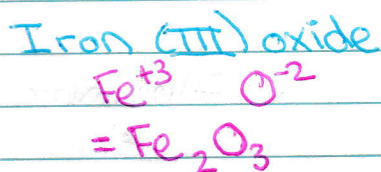 Iron (III) oxide
Fe⁺³ O⁻²
= Fe₂O₃